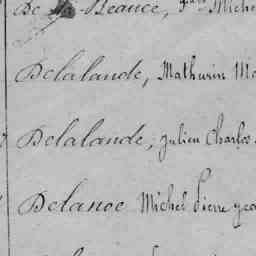 De la Beauce, Miche
Delalande, Mathurin M
Delalande, Julien Charles
Delanoe Michel Pierre